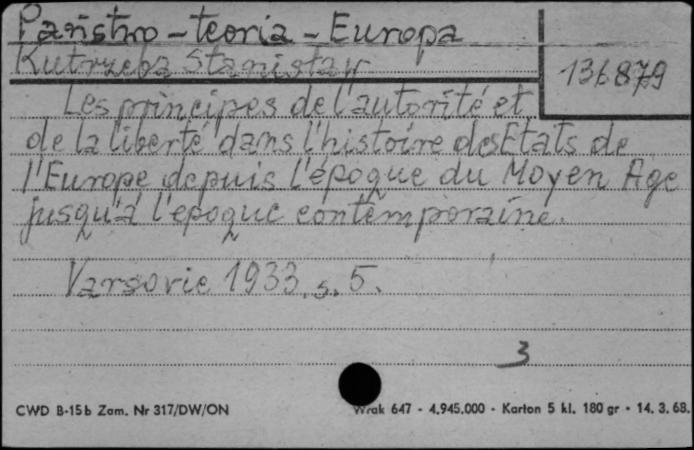 Państwo - teoria - Europa
Kutrzeba Stanisław
136879
Les principes de l'autorité et
de la liberté dans l'histoire des Etats de
l'Europe depuis l'époque du Moyen Age
jusqu'à l'epoque contemporaine.
Varsovie 1933, s. 5.
3
CWD B-15b Zam. Nr 317/DW/ON
Wrak 647 - 4.945.000 - Karton 5 kl. 180 gr - 14. 3. 68.